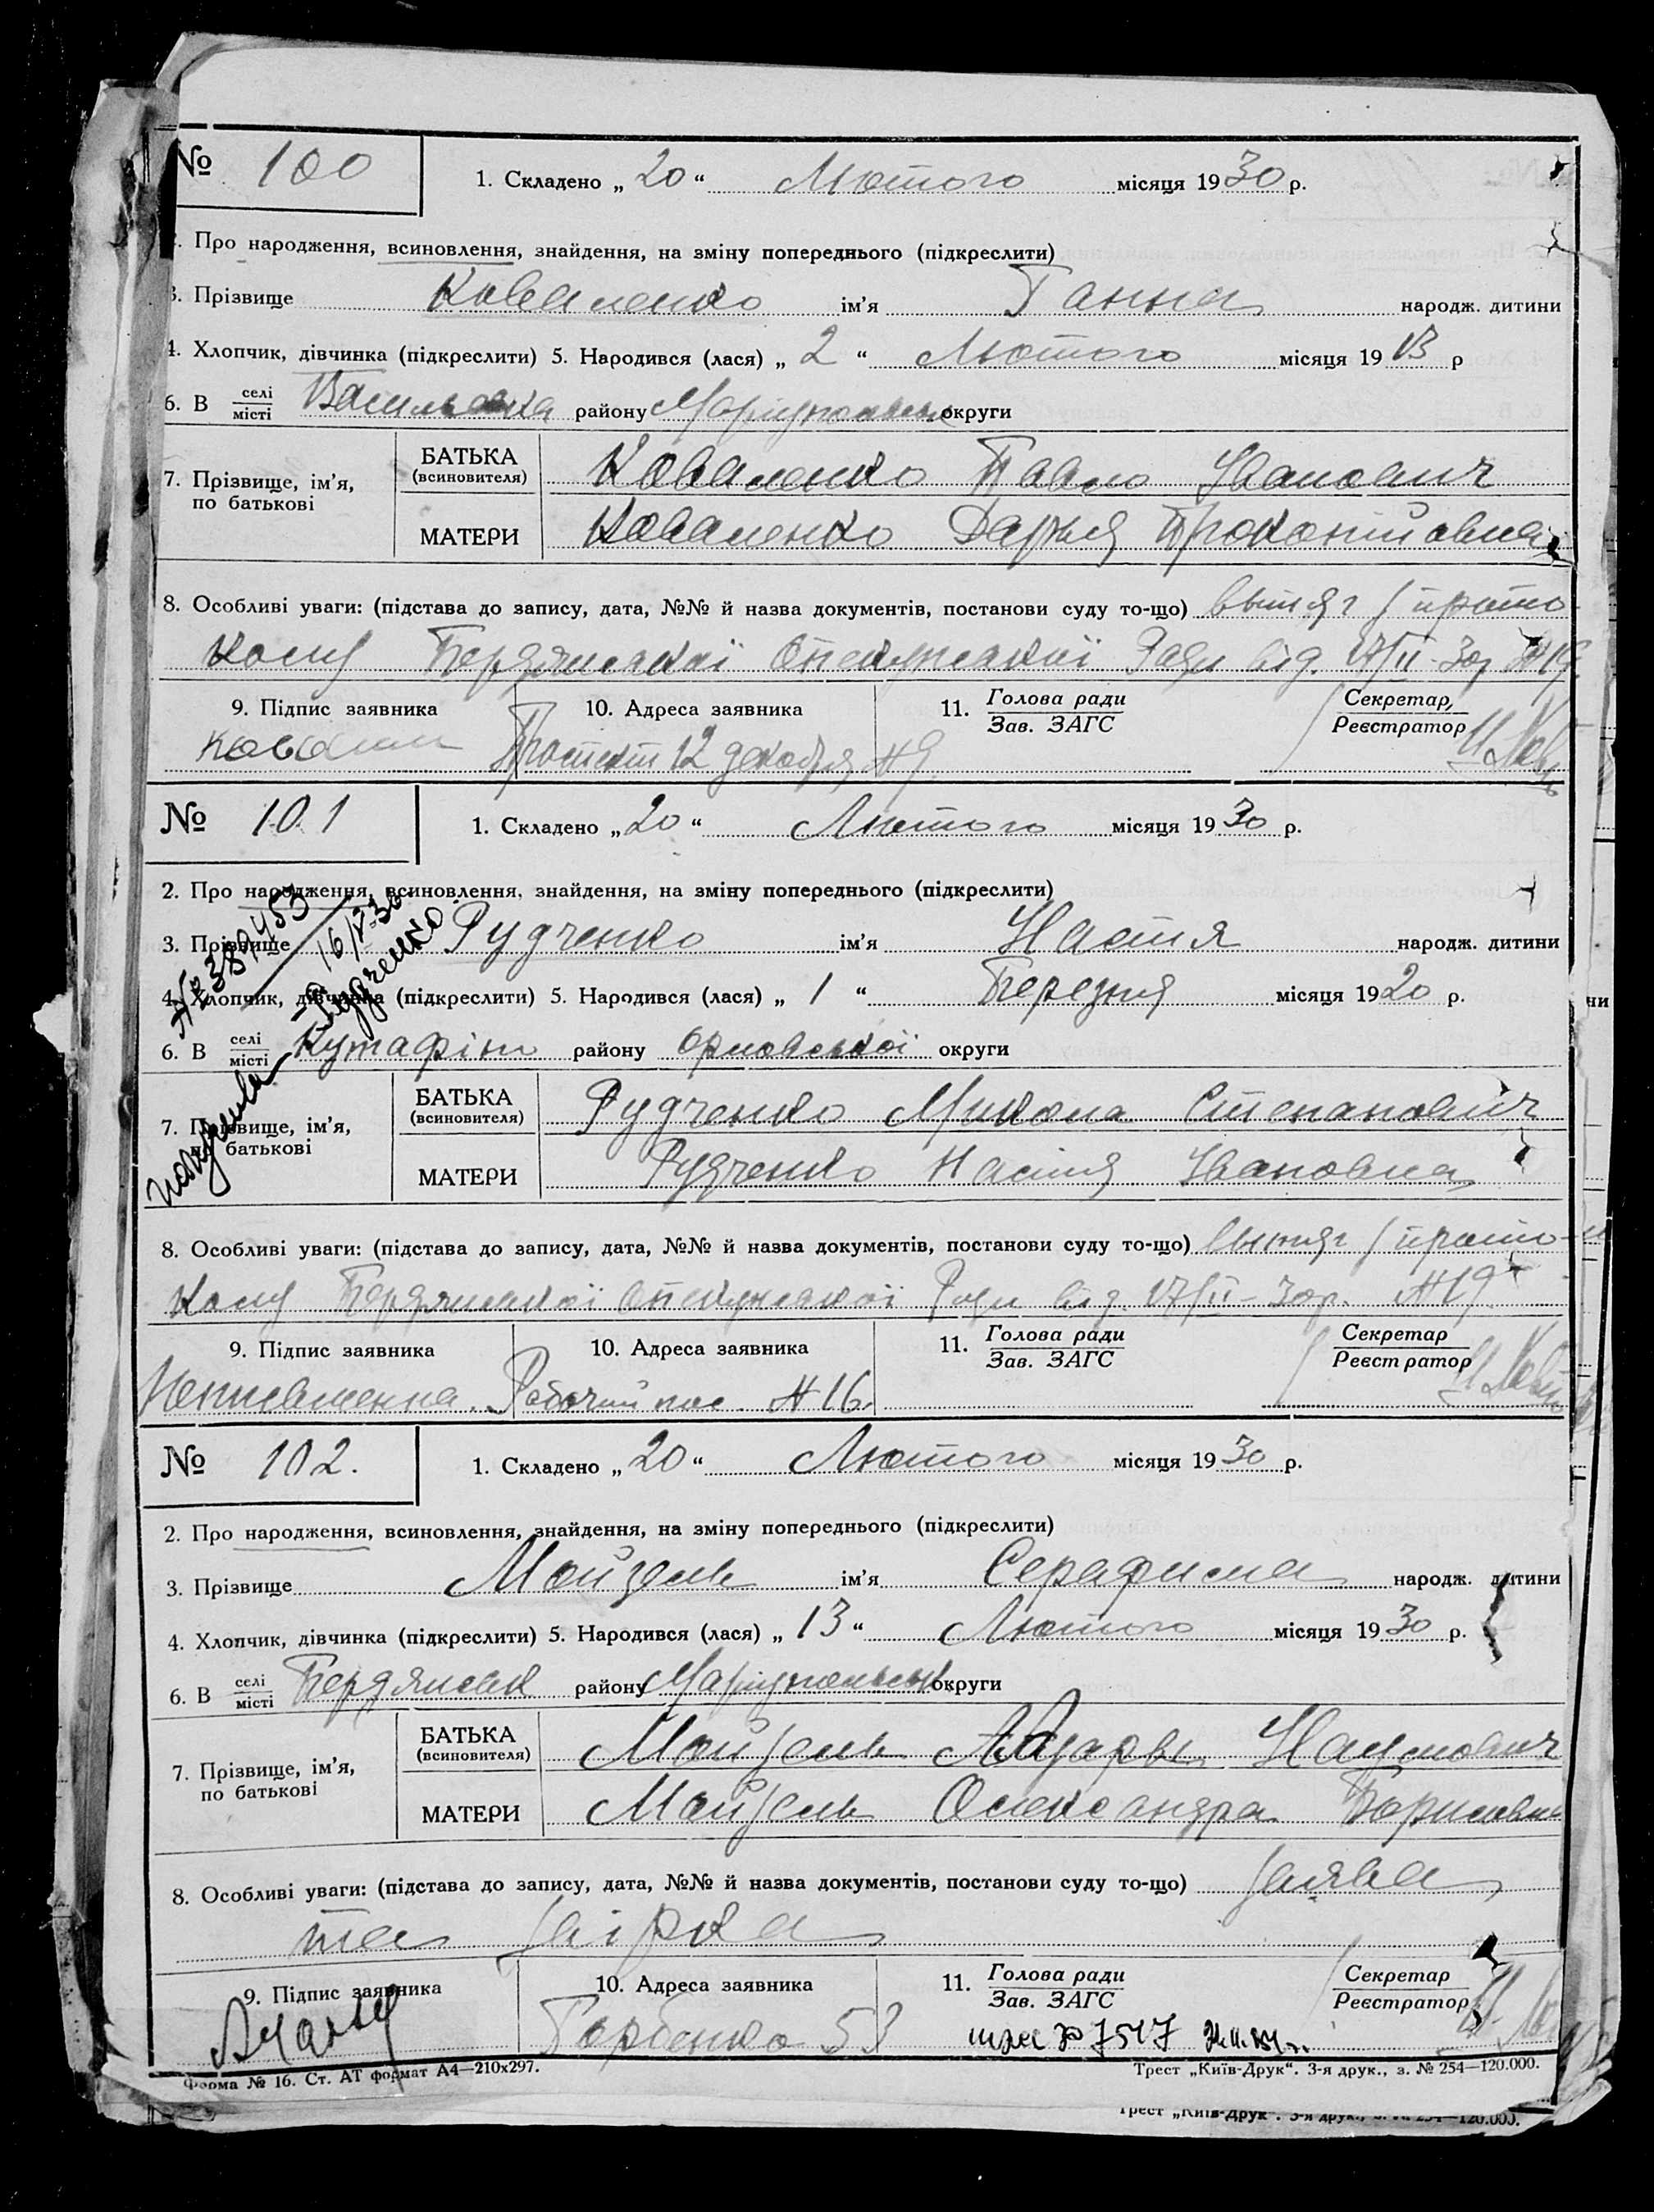 № 100 1. Складено „ 20 “ Лютого місяця 1930 р.
2. Про народження, всиновлення, знайдення, на зміну попереднього (підкреслити)
3. Прізвище Коваленко ім'я Ганна народж. дитини
4. Хлопчик, дівчинка (підкреслити) 5. Народився (лася) „ 2 “ Лютого місяця 1913 р
6. В селі місті Васильевка району Маріупольськ округи
7. Прізвище, ім'я, по батькові
БАТЬКА (всиновителя) Коваленко Павло Іванович
МАТЕРИ Коваленко Дарья Прокопівна
8. Особливі уваги: (підстава до запису, дата, №№ й назва документів, постанови суду то-що) вытяг з прото-
колу Бердянської Опекунської Ради від. 17/II-30р №19.
9. Підпис заявника 10. Адреса заявника 11. Голова ради Зав. ЗАГС Секретар, Реєстратор
Проспект 12 декабря №9.
№ 101 1. Складено „ 20 “ Лютого місяця 1930 р.
2. Про народження, всиновлення, знайдення, на зміну попереднього (підкреслити)
3. Прізвище Рудченко ім'я Настя народж. дитини
4. Хлопчик, дівчинка (підкреслити) 5. Народився (лася) „ 1 “ Березня місяця 1920 р.
6. В селі місті Кутафін району Орловської округи
7. Прізвище, ім'я, по батькові
БАТЬКА (всиновителя) Рудченко Микола Степанович
МАТЕРИ Рудченко Настя Івановна
№ 387453
Рудченко
8. Особливі уваги: (підстава до запису, дата, №№ й назва документів, постанови суду то-що) вытяг з прото-
колу Бердянської Опекунської Ради від. 17/II-30р. №19
9. Підпис заявника 10. Адреса заявника 11. Голова ради Зав. ЗАГС Секретар Реєстратор
Неписьменна. Рабочий пос. №16.
№ 102. 1. Складено „ 20 “ Лютого місяця 1930 р.
2. Про народження, всиновлення, знайдення, на зміну попереднього (підкреслити)
3. Прізвище Мойзель ім'я Серафима народж. дитини
4. Хлопчик, дівчинка (підкреслити) 5. Народився (лася) „ 13 “ Лютого місяця 1930 р.
6. В селі місті Бердянськ району Маріупольськ. округи
7. Прізвище, ім'я, по батькові
БАТЬКА (всиновителя) Мойзель Наумович
МАТЕРИ Мойзель Олександра Борисовна
8. Особливі уваги: (підстава до запису, дата, №№ й назва документів, постанови суду то-що) заява
та
9. Підпис заявника 10. Адреса заявника 11. Голова ради Зав. ЗАГС Секретар Реєстратор
Горбенко 53 № 7517
Форма № 16. Ст. АТ формат А4—210х297. Трест „Київ-Друк“. 3-я друк., з. № 254—120.000.
Трест „Київ-Друк“. 3-я друк., з. № 254—120.000.